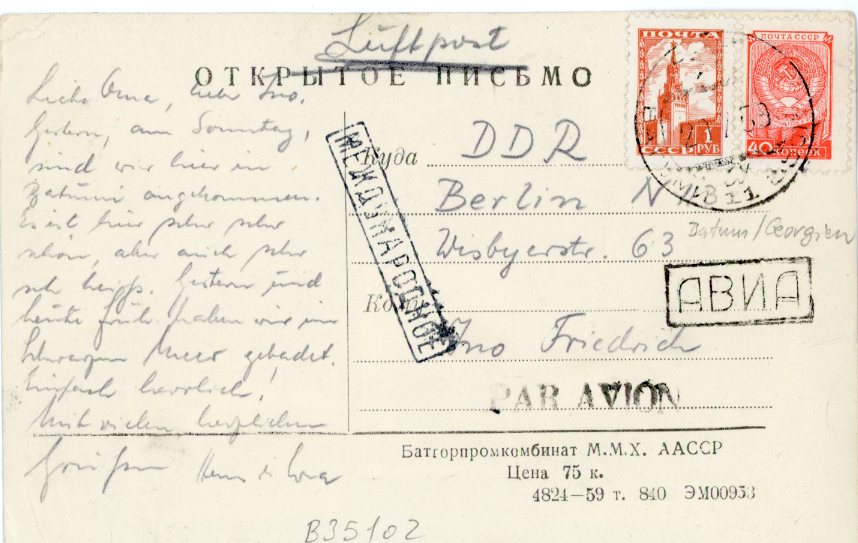 Luftpost
ОТКРЫТОЕ ПИСЬМО
Liebe Oma, lieber Ino.
Gestern, am Sonntag,
sind wir hier in
Batumi angekommen.
Es ist hier sehr sehr
schön, aber auch sehr
sehr heiss. Gestern und
heute früh haben wir im
Schwarzen Meer gebadet.
Einfach herrlich!
Mit vielen herzlichen
Grüßen
ПОЧТА
1
РУБ
СССР
ПОЧТА СССР
40 КОПЕЕК
Куда DDR
Berlin N
Wisbyerstr. 63
Batum/Georgien
МЕЖДУНАРОДНОЕ
АВИА
Ino Friedrich
PAR AVION
Батгорпромкомбинат М.М.Х. ААССР
Цена 75 к.
4824—59 т. 840 ЭМ00953
B35102